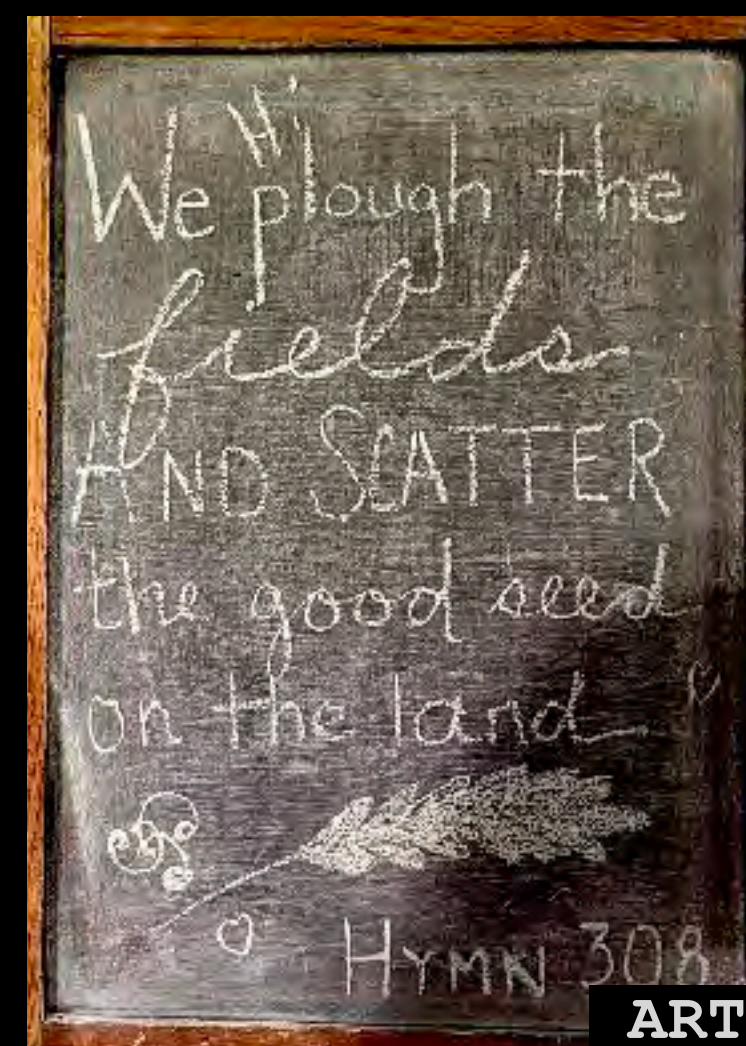 Hi
We plough the
fields
AND SCATTER
the good seed
on the land
HYMN 308
ART